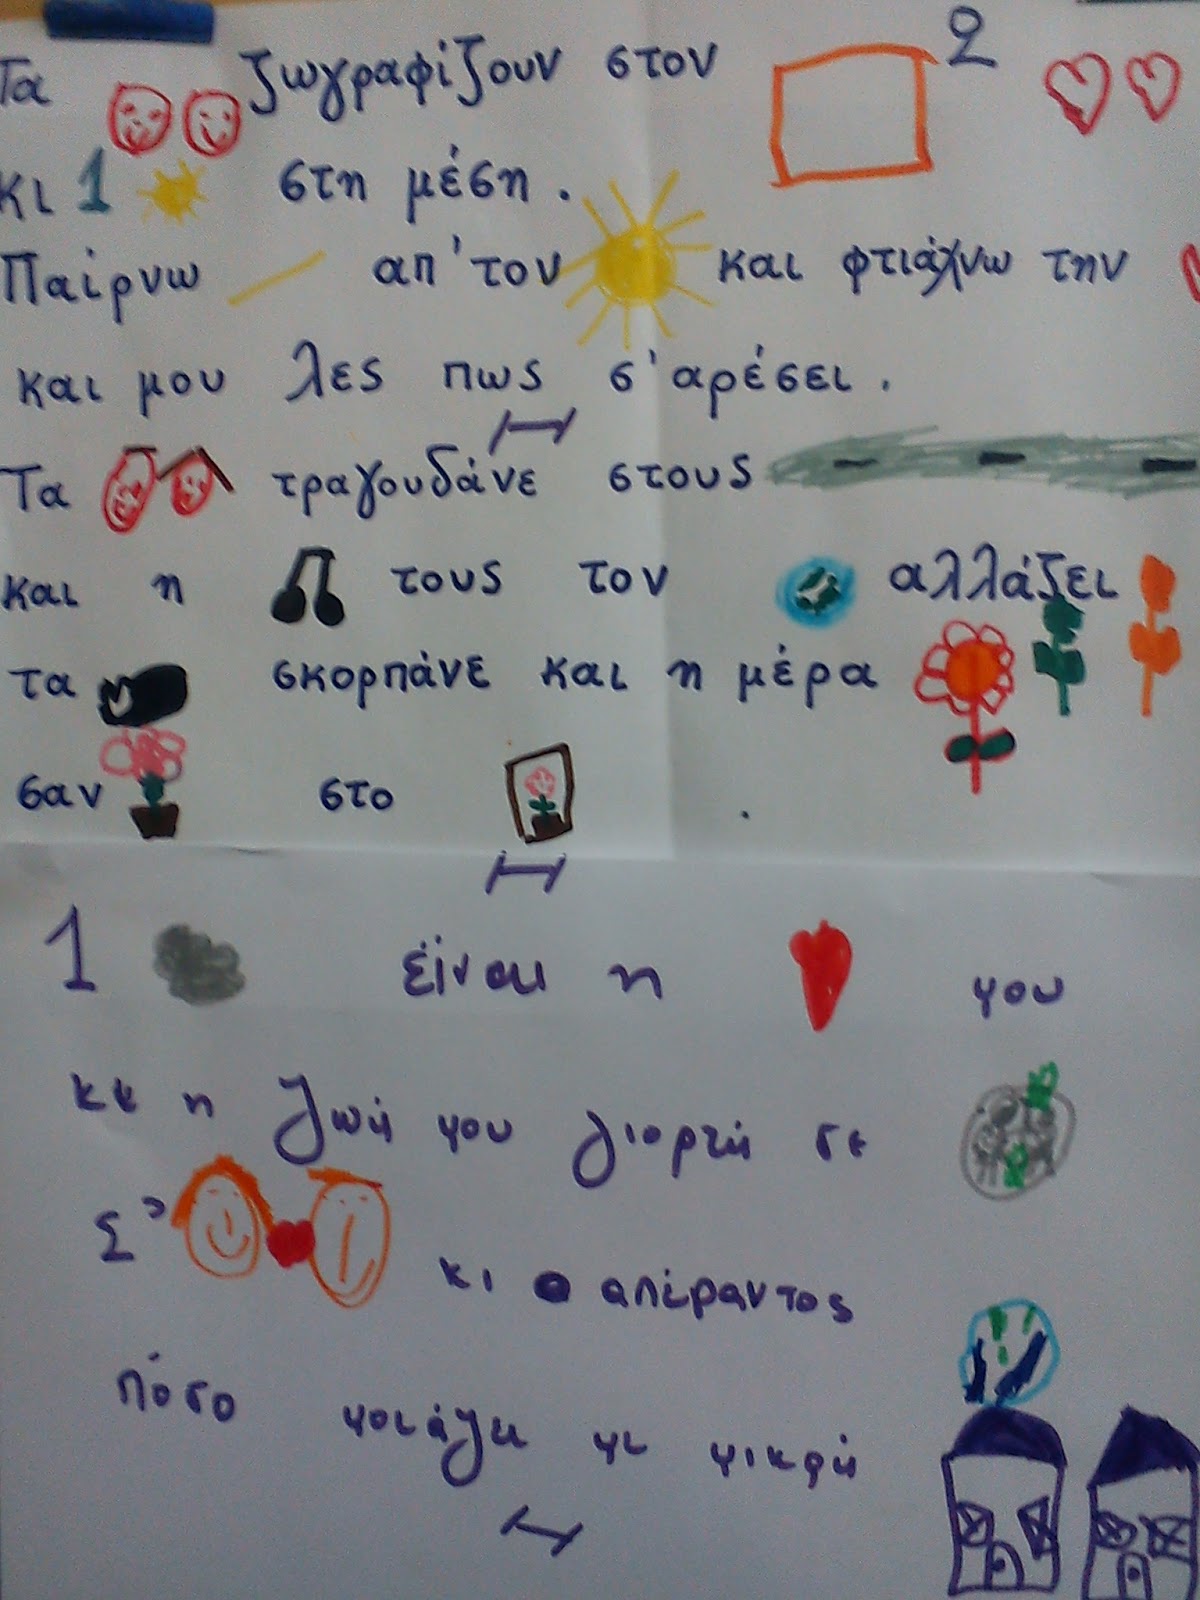 Τα ζωγραφίζουν στον 2
κι 1 στη μέση.
Παίρνω απ'τον και φτιάχνω την
και μου λες πως σ'αρέσει.
Τα τραγουδάνε στους
και η τους τον αλλάζει
τα σκορπάνε και η μέρα
σαν στο .
1 είναι η μου
κι η ζωή μου γιορτή σε
Σ' κι ο απέραντος
πόσο μοιάζει με μικρή